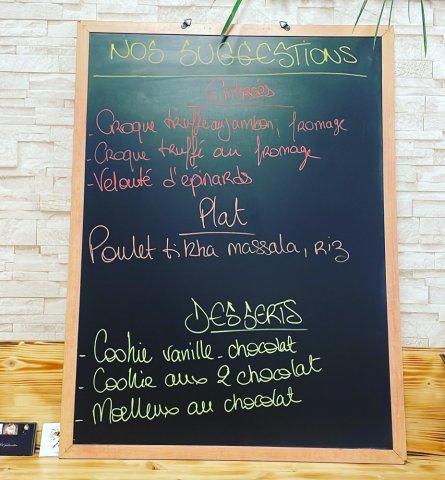 NOS SUGGESTIONS
Entrées
- Croque truffe au jambon, fromage
- Croque truffé au fromage
- Velouté d'épinards
Plat
Poulet tikha massala, riz
DESSERTS
- Cookie vanille - chocolat
- Cookie aux 2 chocolat
- Moelleux au chocolat